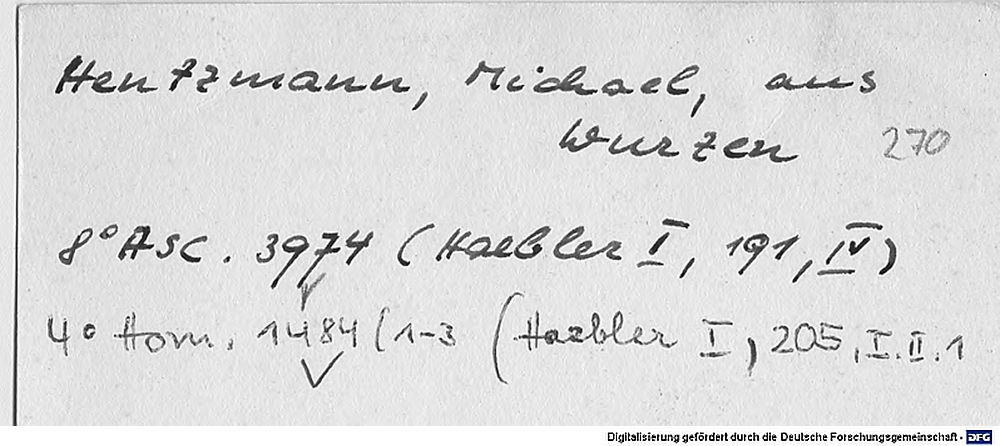 Hentzmann, Michael, aus
Wurzen 270
8° Asc. 3974 (Haebler I, 191, IV)
4° Hom. 1484 (1-3 (Haebler I, 205, I.II.1
Digitalisierung gefördert durch die Deutsche Forschungsgemeinschaft - DFG